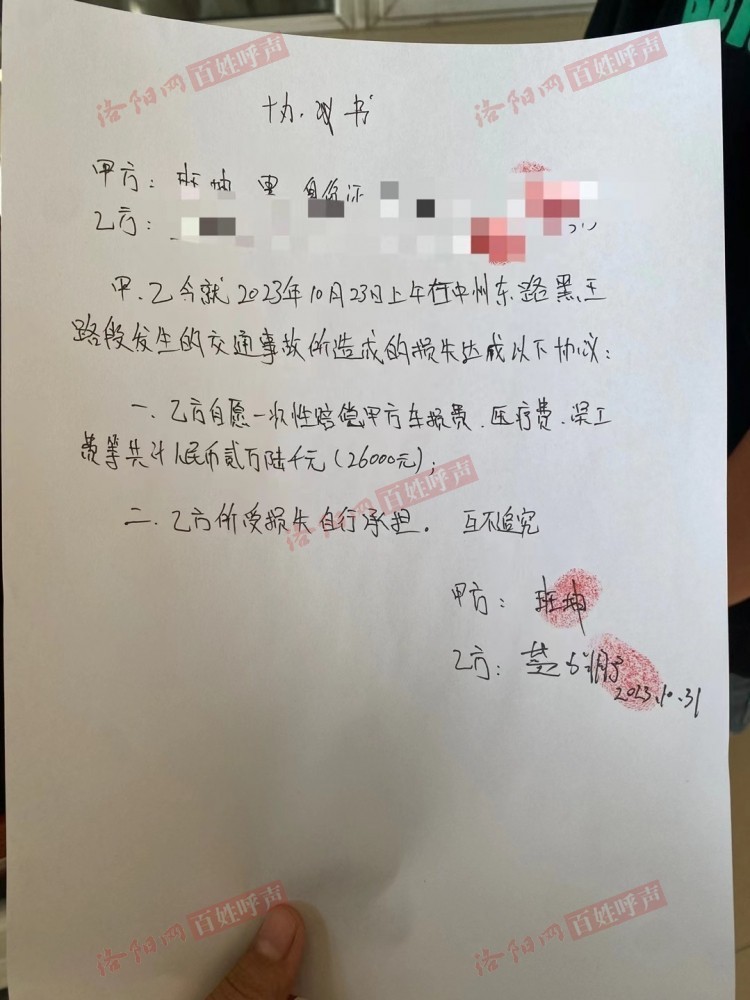 洛阳网 百姓呼声
洛阳网 百姓呼声
协议书
甲方: 班坤 男 身份证
乙方:
甲、乙今就2023年10月23日上午在中州东路黑王
路段发生的交通事故所造成的损失达成以下协议:
一、乙方自愿一次性赔偿甲方车损费、医疗费、误工
费等共计人民币贰万陆千元(26000元);
洛阳网 百姓呼声
二、乙方所受损失自行承担。 互不追究
甲方: 班坤
乙方:
2023.10.31
洛阳网 百姓呼声
洛阳网 百姓呼声